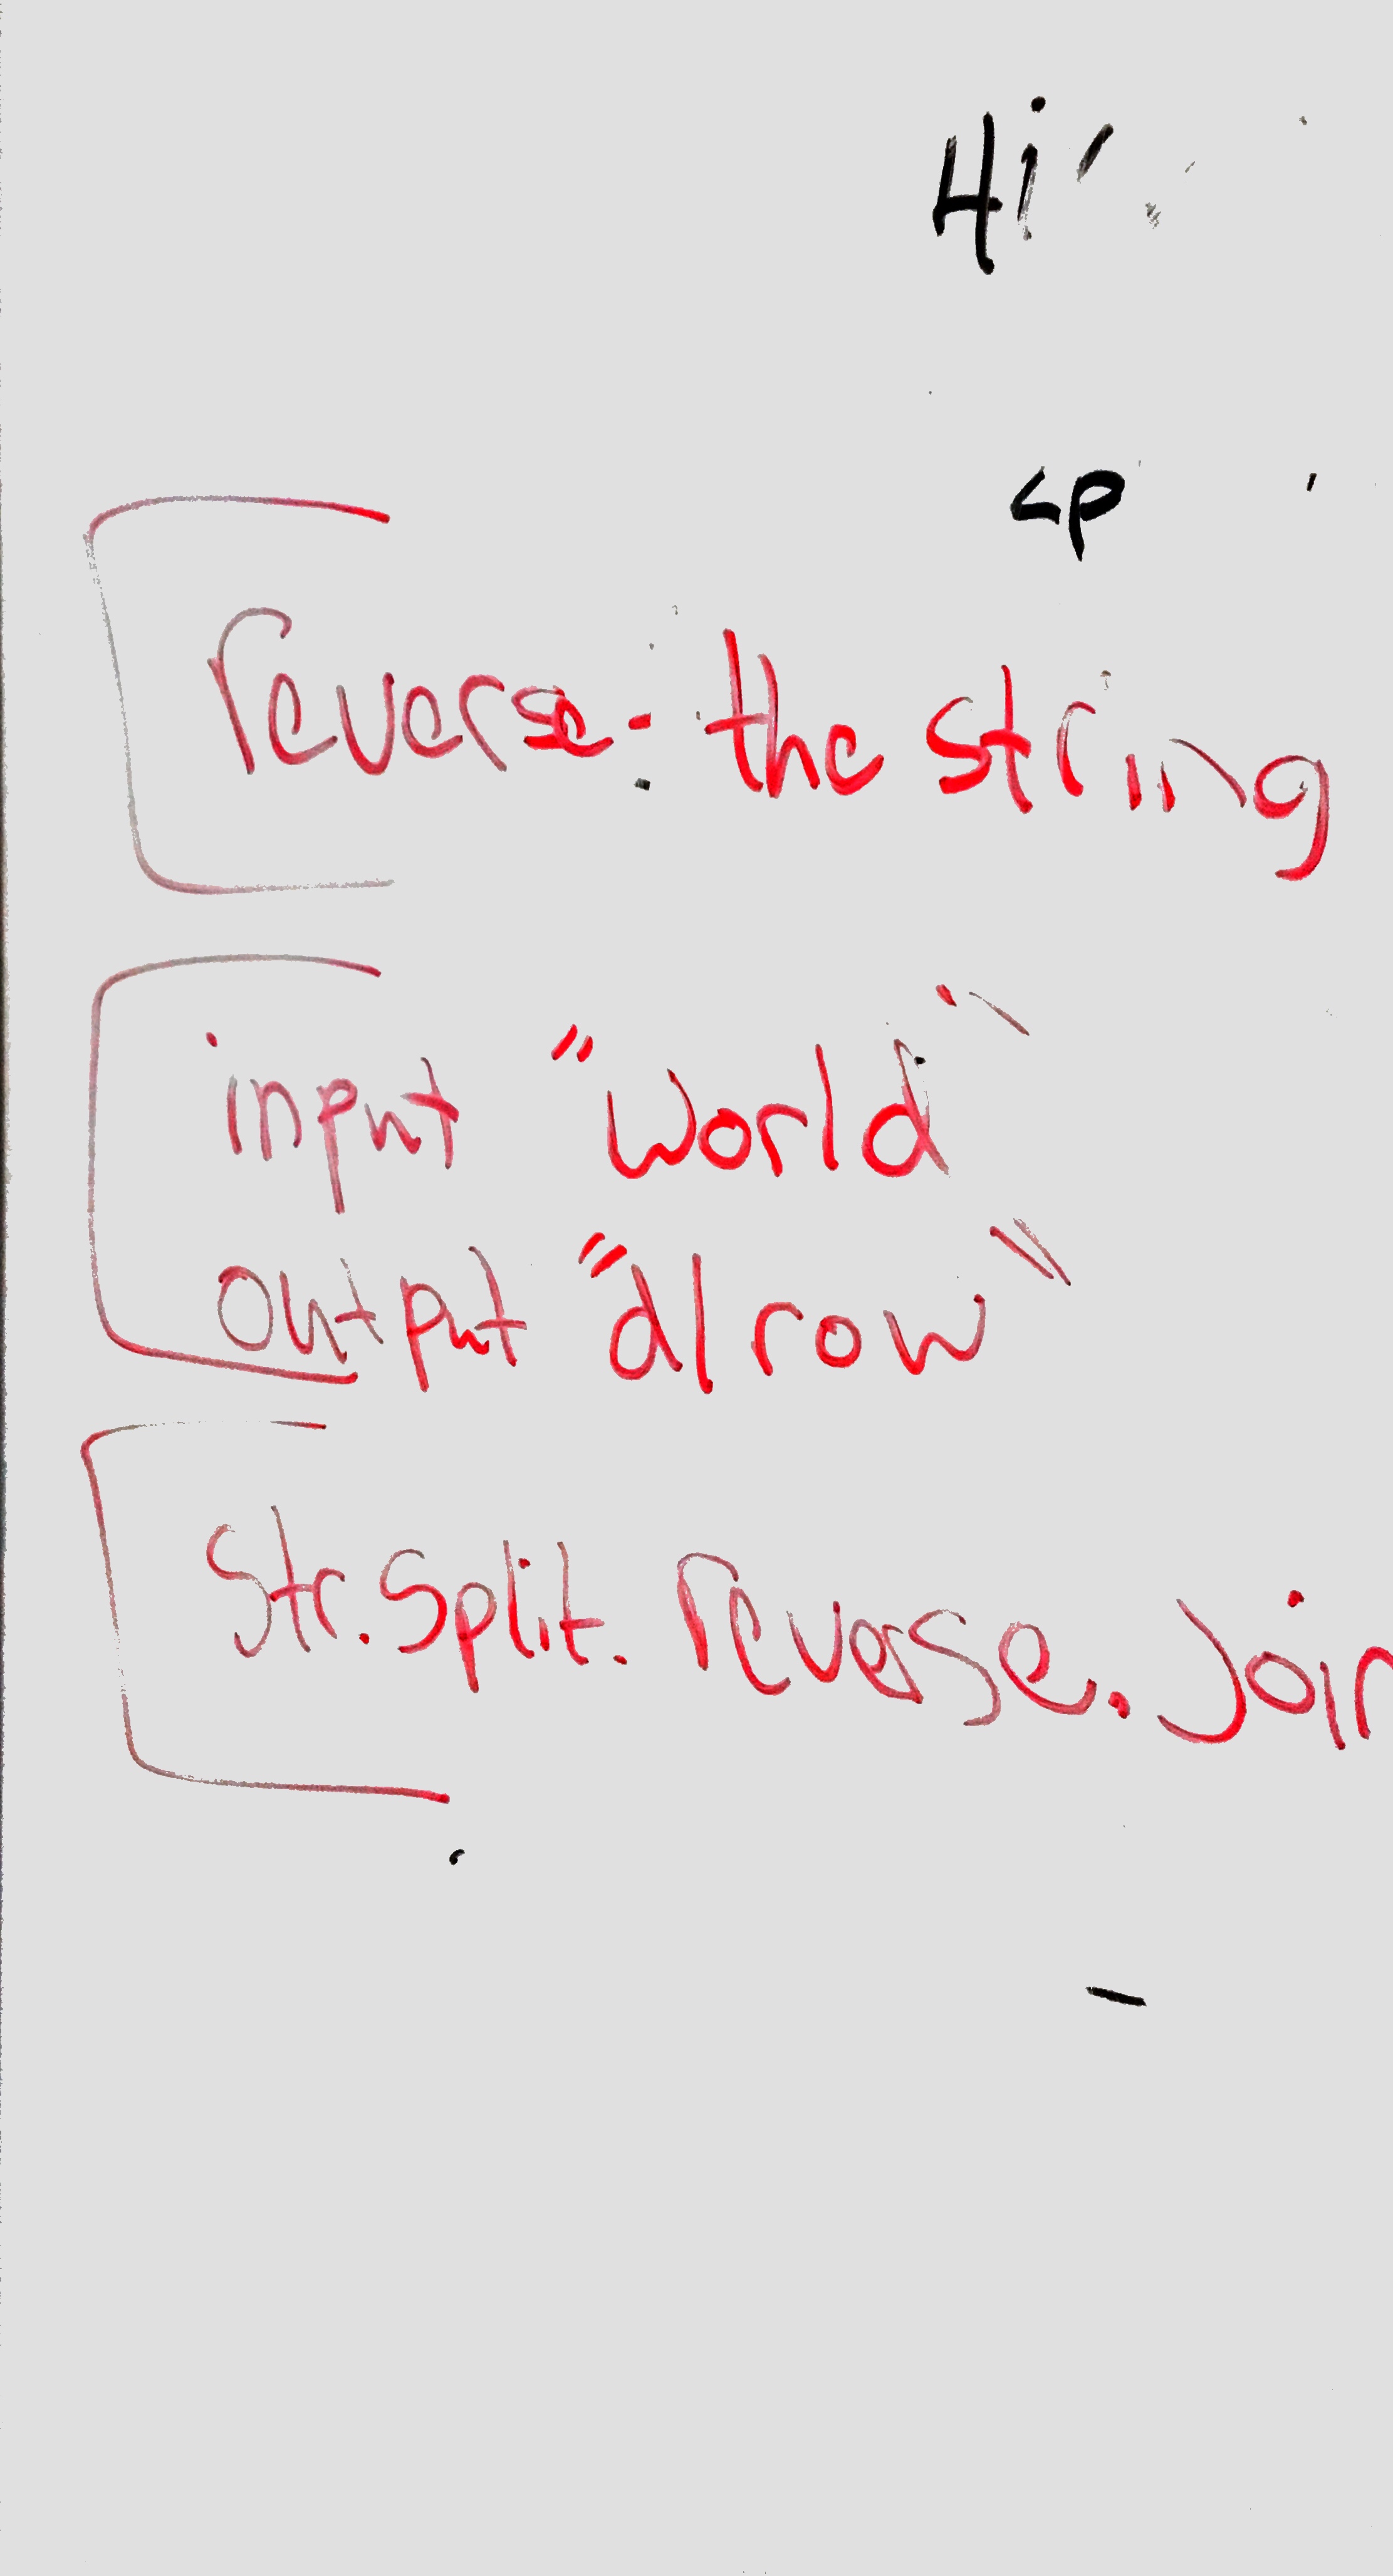 Hi
<p
reverse: the string
input "World"
output "dlrow"
Str.Split.reverse.Join